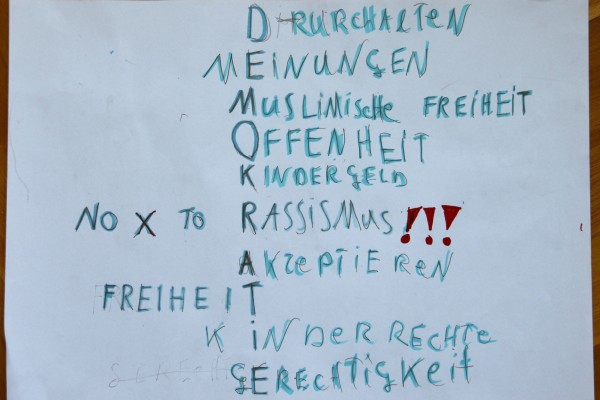 DURCHALTEN
MEINUNGEN
MUSLIMISCHE FREIHEIT
OFFENHEIT
KINDERGELD
NO X TO RASSISMUS!!!
AKZEPTIEREN
FREIHEIT
KINDERRECHTE
GERECHTIGKEIT